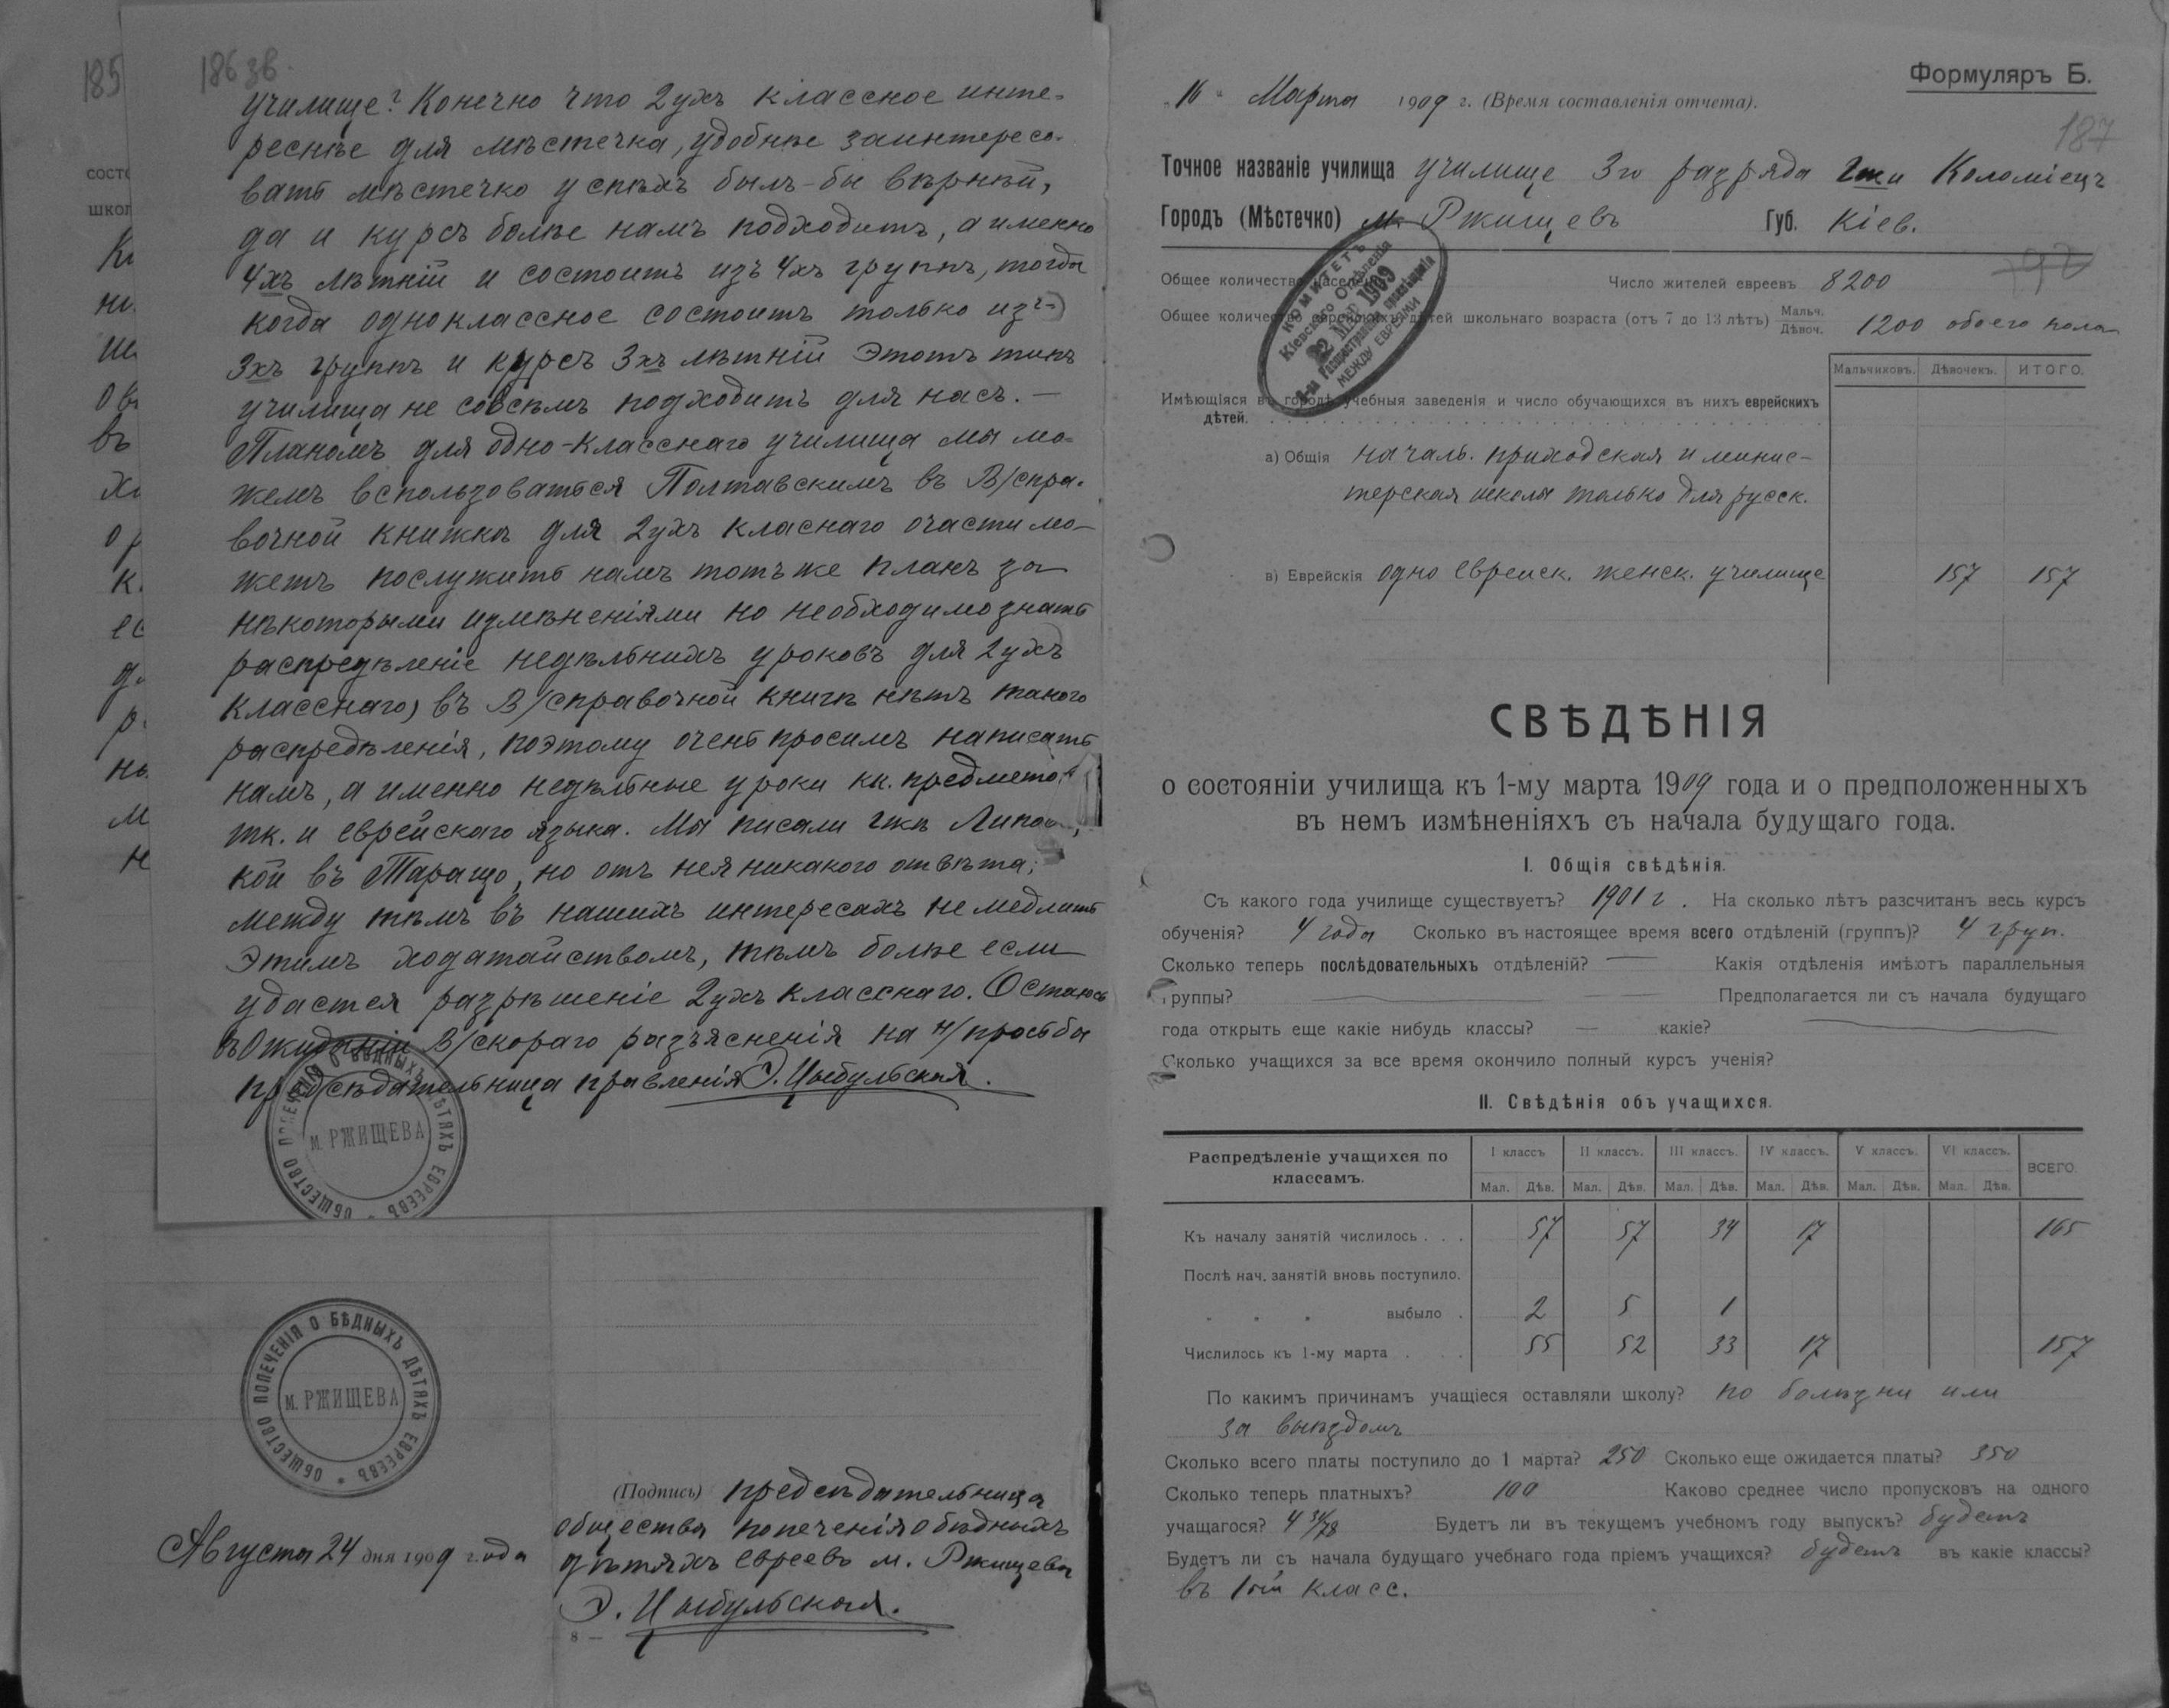 185
186 зв.
состо
школ
училище? Конечно что 2ухъ классное инте-
реснѣе для мѣстечка, удобнѣе заинтересо-
вать мѣстечко успѣхъ былъ-бы вѣрнѣй,
да и курсъ болѣе намъ подходитъ, а именно
4хъ лѣтній и состоитъ изъ 4хъ группъ, тогда
когда одноклассное состоитъ только изъ-
3хъ группъ и курсъ 3хъ лѣтній этотъ типъ
училища не совсѣмъ подходитъ для насъ. —
Планомъ для одно-класснаго училища мы мо-
жемъ вспользоваться Полтавскимъ въ В/спра-
вочной книжкѣ для 2ухъ класнаго очасти мо-
жетъ послужить намъ тотъ же планъ за
нѣкоторыми измѣненіями но необходимо знать
распредѣленіе недѣльныхъ уроковъ для 2ухъ
класснаго) въ В/справочной книгѣ нѣтъ такого
распредѣленія, поэтому очень просимъ написать
намъ, а именно недѣльные уроки кк. предмето
тк. и еврейскаго языка. Мы писали гжѣ
кой въ Таращо, но отъ нея никакого отвѣта;
между тѣмъ въ нашихъ интересахъ не медлить
этимъ ходатайствомъ, тѣмъ болѣе если
удастся разрѣшеніе 2ухъ класснаго. Остаюсь
въ ожиданіи В/скораго разъясненія на н/просьбы
предсѣдательница правленія Э. Цыбульская.
ОБЩЕСТВО ПОПЕЧЕНІЯ О БѢДНЫХЪ ДѢТЯХЪ ЕВРЕЕВЪ
м. РЖИЩЕВА
ОБЩЕСТВО ПОПЕЧЕНІЯ О БѢДНЫХЪ ДѢТЯХЪ ЕВРЕЕВЪ
м. РЖИЩЕВА
Августа 24 дня 1909 года
(Подпись) предсѣдательница
общества попеченія о бѣдныхъ
дѣтяхъ евреевъ м. Ржищева
Э. Цыбульская.
— 8 —
Формуляръ Б.
„16“ Марта 1909 г. (Время составленія отчета).
187
Точное названіе училища училище 3го разряда Гжи Коломіецъ
Городъ (Мѣстечко) м. Ржищевъ Губ. Кіев.
Общее количество населенія Число жителей евреевъ 8200
Общее количество еврейскихъ дѣтей школьнаго возраста (отъ 7 до 13 лѣтъ) Мальч. Дѣвоч. 1200 обоего пола
КОМИТЕТЪ
Кіевскаго Отдѣленія
22 МАР 1909
О-ва Распространенія просвѣщенія
МЕЖДУ ЕВРЕЯМИ
Мальчиковъ. Дѣвочекъ. ИТОГО.
Имѣющіяся въ городѣ учебныя заведенія и число обучающихся въ нихъ еврейскихъ
дѣтей.
а) Общія началь. приходская и минис-
терская школы только для русск.
в) Еврейскія одно еврейск. женск. училище 157 157
СВѢДѢНІЯ
о состояніи училища къ 1-му марта 1909 года и о предположенныхъ
въ немъ измѣненіяхъ съ начала будущаго года.
I. Общія свѣдѣнія.
Съ какого года училище существуетъ? 1901 г. На сколько лѣтъ разсчитанъ весь курсъ
обученія? 4 года Сколько въ настоящее время всего отдѣленій (группъ)? 4 груп.
Сколько теперь послѣдовательныхъ отдѣленій? — Какія отдѣленія имѣютъ параллельныя
группы? — Предполагается ли съ начала будущаго
года открыть еще какіе нибудь классы? — какіе? —
Сколько учащихся за все время окончило полный курсъ ученія?
II. Свѣдѣнія объ учащихся.
Распредѣленіе учащихся по классамъ. I классъ II классъ. III классъ. IV классъ. V классъ. VI классъ. ВСЕГО.
Мал. Дѣв. Мал. Дѣв. Мал. Дѣв. Мал. Дѣв. Мал. Дѣв. Мал. Дѣв.
Къ началу занятій числилось . . . 57 57 34 17 165
Послѣ нач. занятій вновь поступило.
„ „ „ выбыло . 2 5 1
Числилось къ 1-му марта . . . 55 52 33 17 157
По какимъ причинамъ учащіеся оставляли школу? по болѣзни или
за выѣздомъ
Сколько всего платы поступило до 1 марта? 250 Сколько еще ожидается платы? 350
Сколько теперь платныхъ? 100 Каково среднее число пропусковъ на одного
учащагося? 4 34/78 Будетъ ли въ текущемъ учебномъ году выпускъ? будетъ
Будетъ ли съ начала будущаго учебнаго года пріемъ учащихся? будетъ въ какіе классы?
въ 1ый класс.